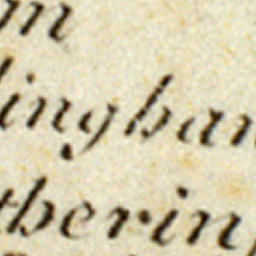 m
inghan
therin